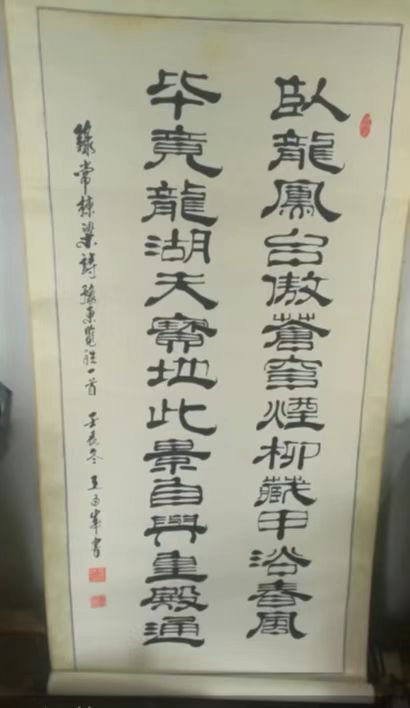 臥龍鳳台傲蒼穹煙柳藏甲浴春風
毕竟龍湖天寳地此景自與重殿通
錄常棟梁詩豫東覽勝一首 壬辰冬 書